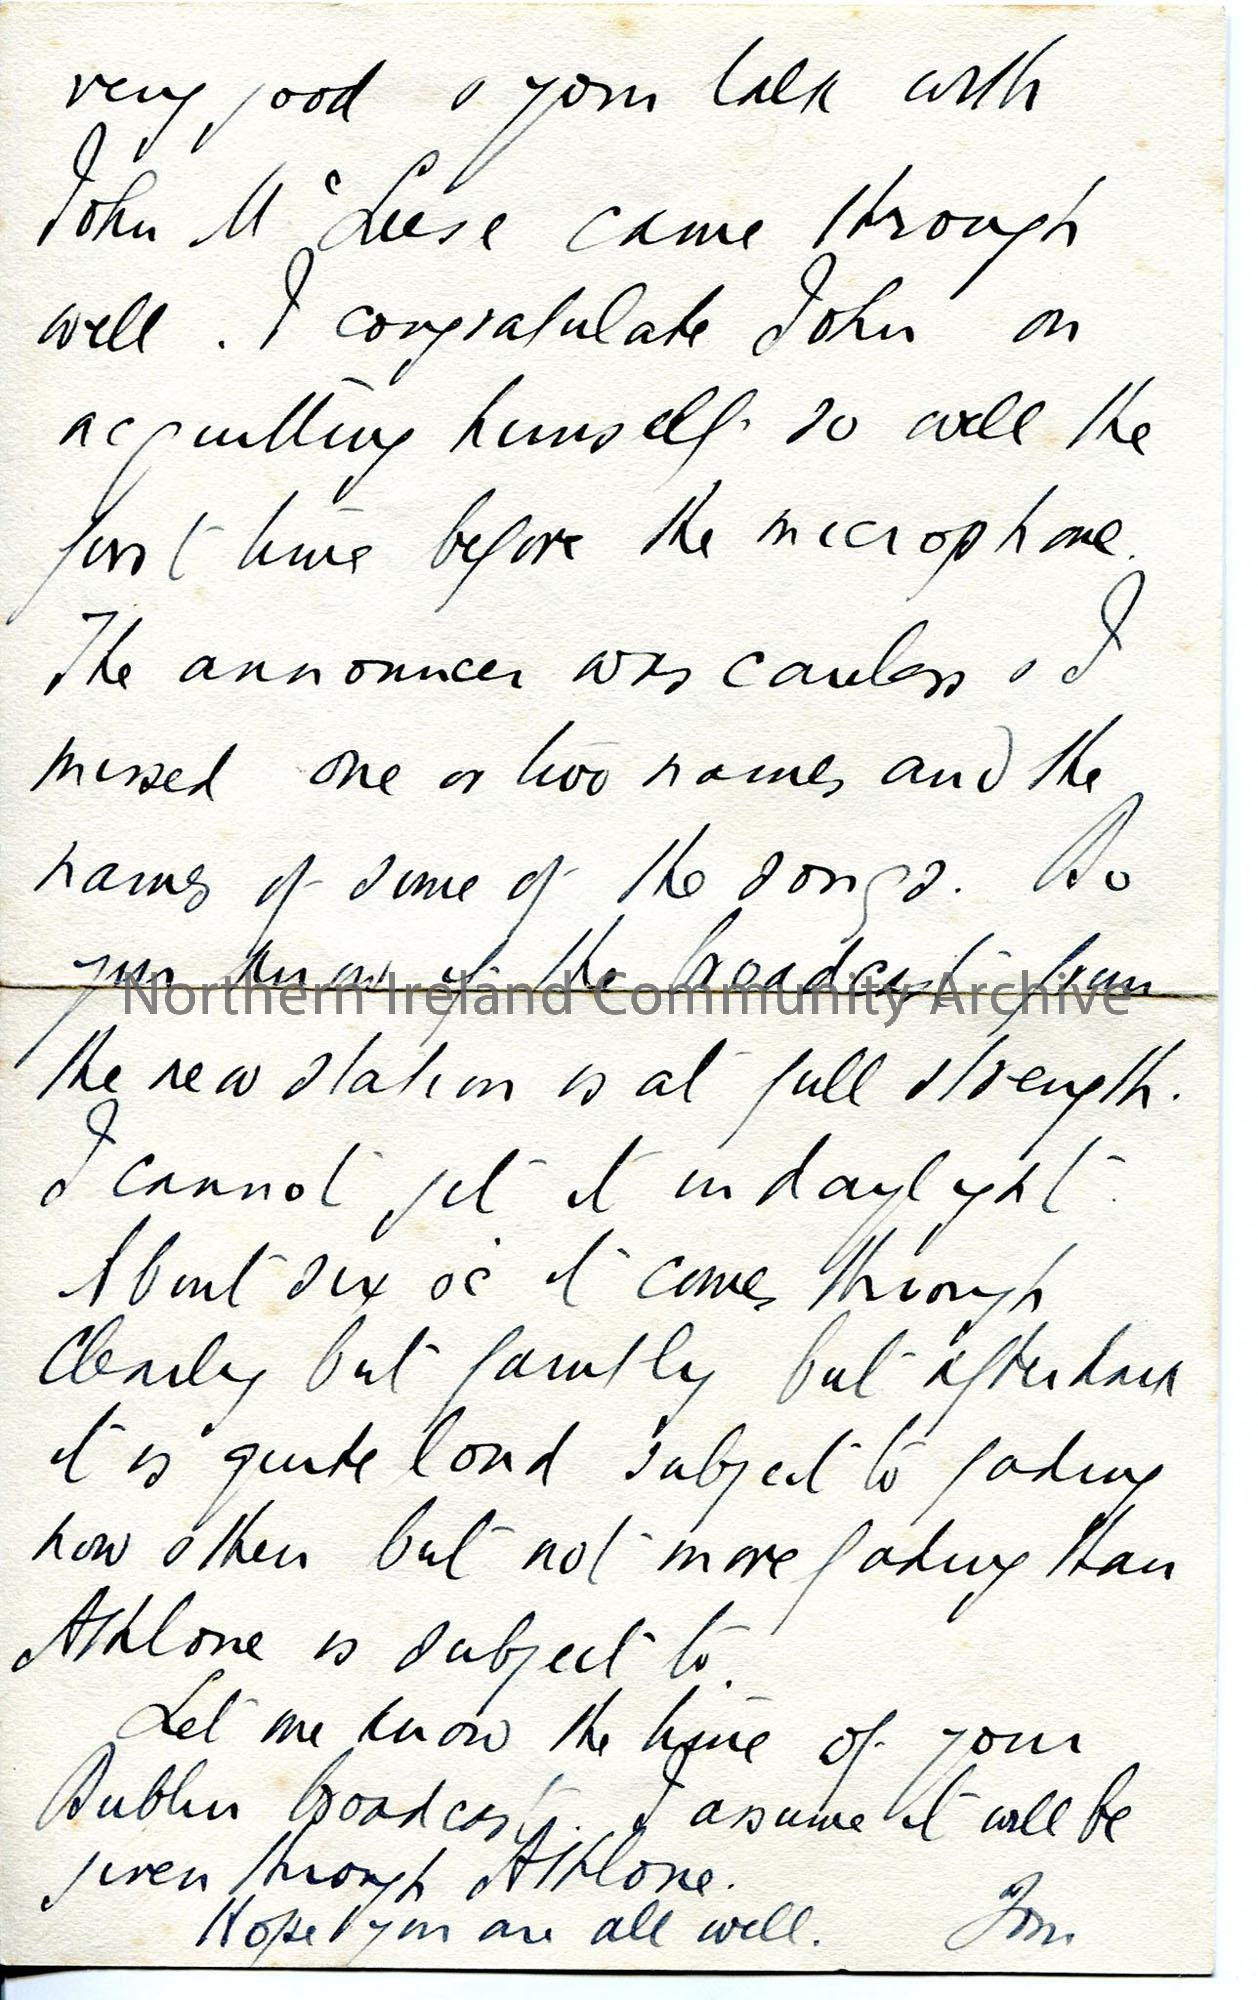 very good & your talk with
John McLeese came through
well. I congratulate John on
acquitting himself so well the
first time before the microphone.
The announcer was careless & I
missed one or two names and the
names of some of the songs. Do
you know if the broadcast from
Northern Ireland Community Archive
the new station is at full strength.
I cannot get it in daylight.
About six oc it comes through
clearly but faintly but after dark
it is quite loud subject to fading
now & then but not more fading than
Athlone is subject to.
Let me know the time of your
Dublin broadcast. I assume it will be
given through Athlone.
Hope you are all well. Tom